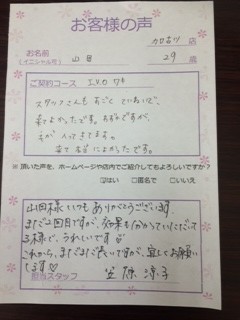 お客様の声
お名前
(イニシャル可)
山田
店
29 歳
ご契約コース
スタッフさんもすごくていねいで、
来てよかったです。まだ2回ですが、
来て本当によかったです。
※頂いた声を、ホームページや店内でご紹介してもよろしいですか?
□はい □匿名で □いいえ
山田様いつもありがとうございます。
まだ2回目ですが、効果も分かっていただいて
る様で、うれしいです
これから、まだまだ長いですが、宜しくお願い
します♡
担当スタッフ 笠原 涼子